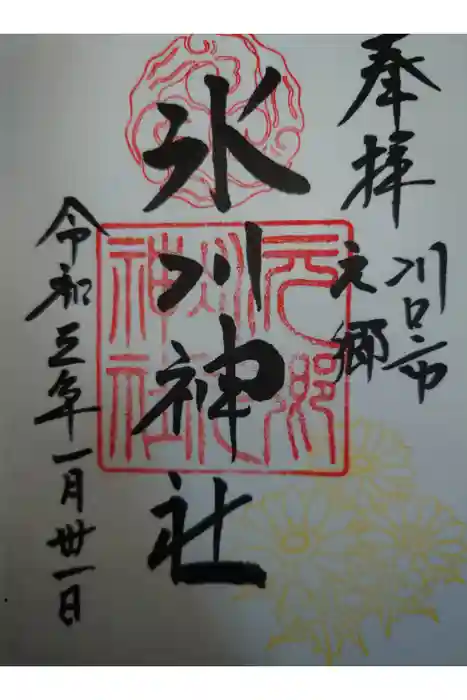 奉拝
川口市
元郷
氷川神社
令和五年一月卅一日
元郷
氷川
神社